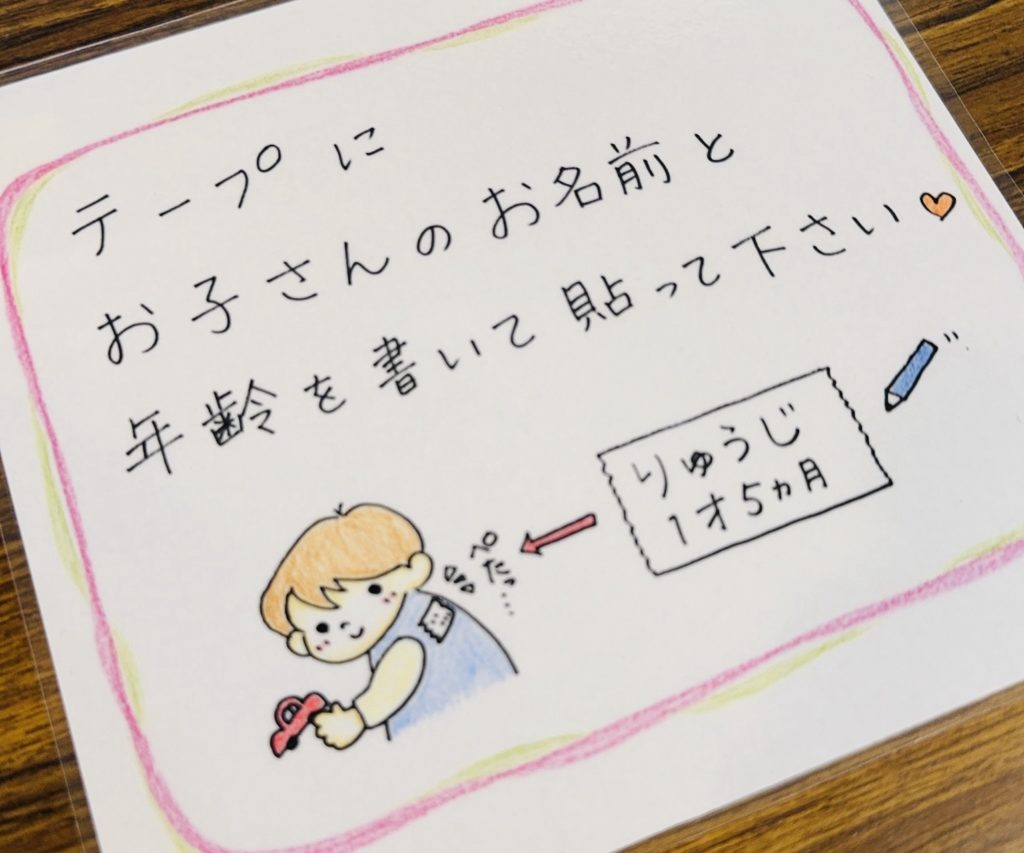 テープに
お子さんのお名前と
年齢を書いて貼って下さい
りゅうじ
1才5ヵ月
ぺたっ…